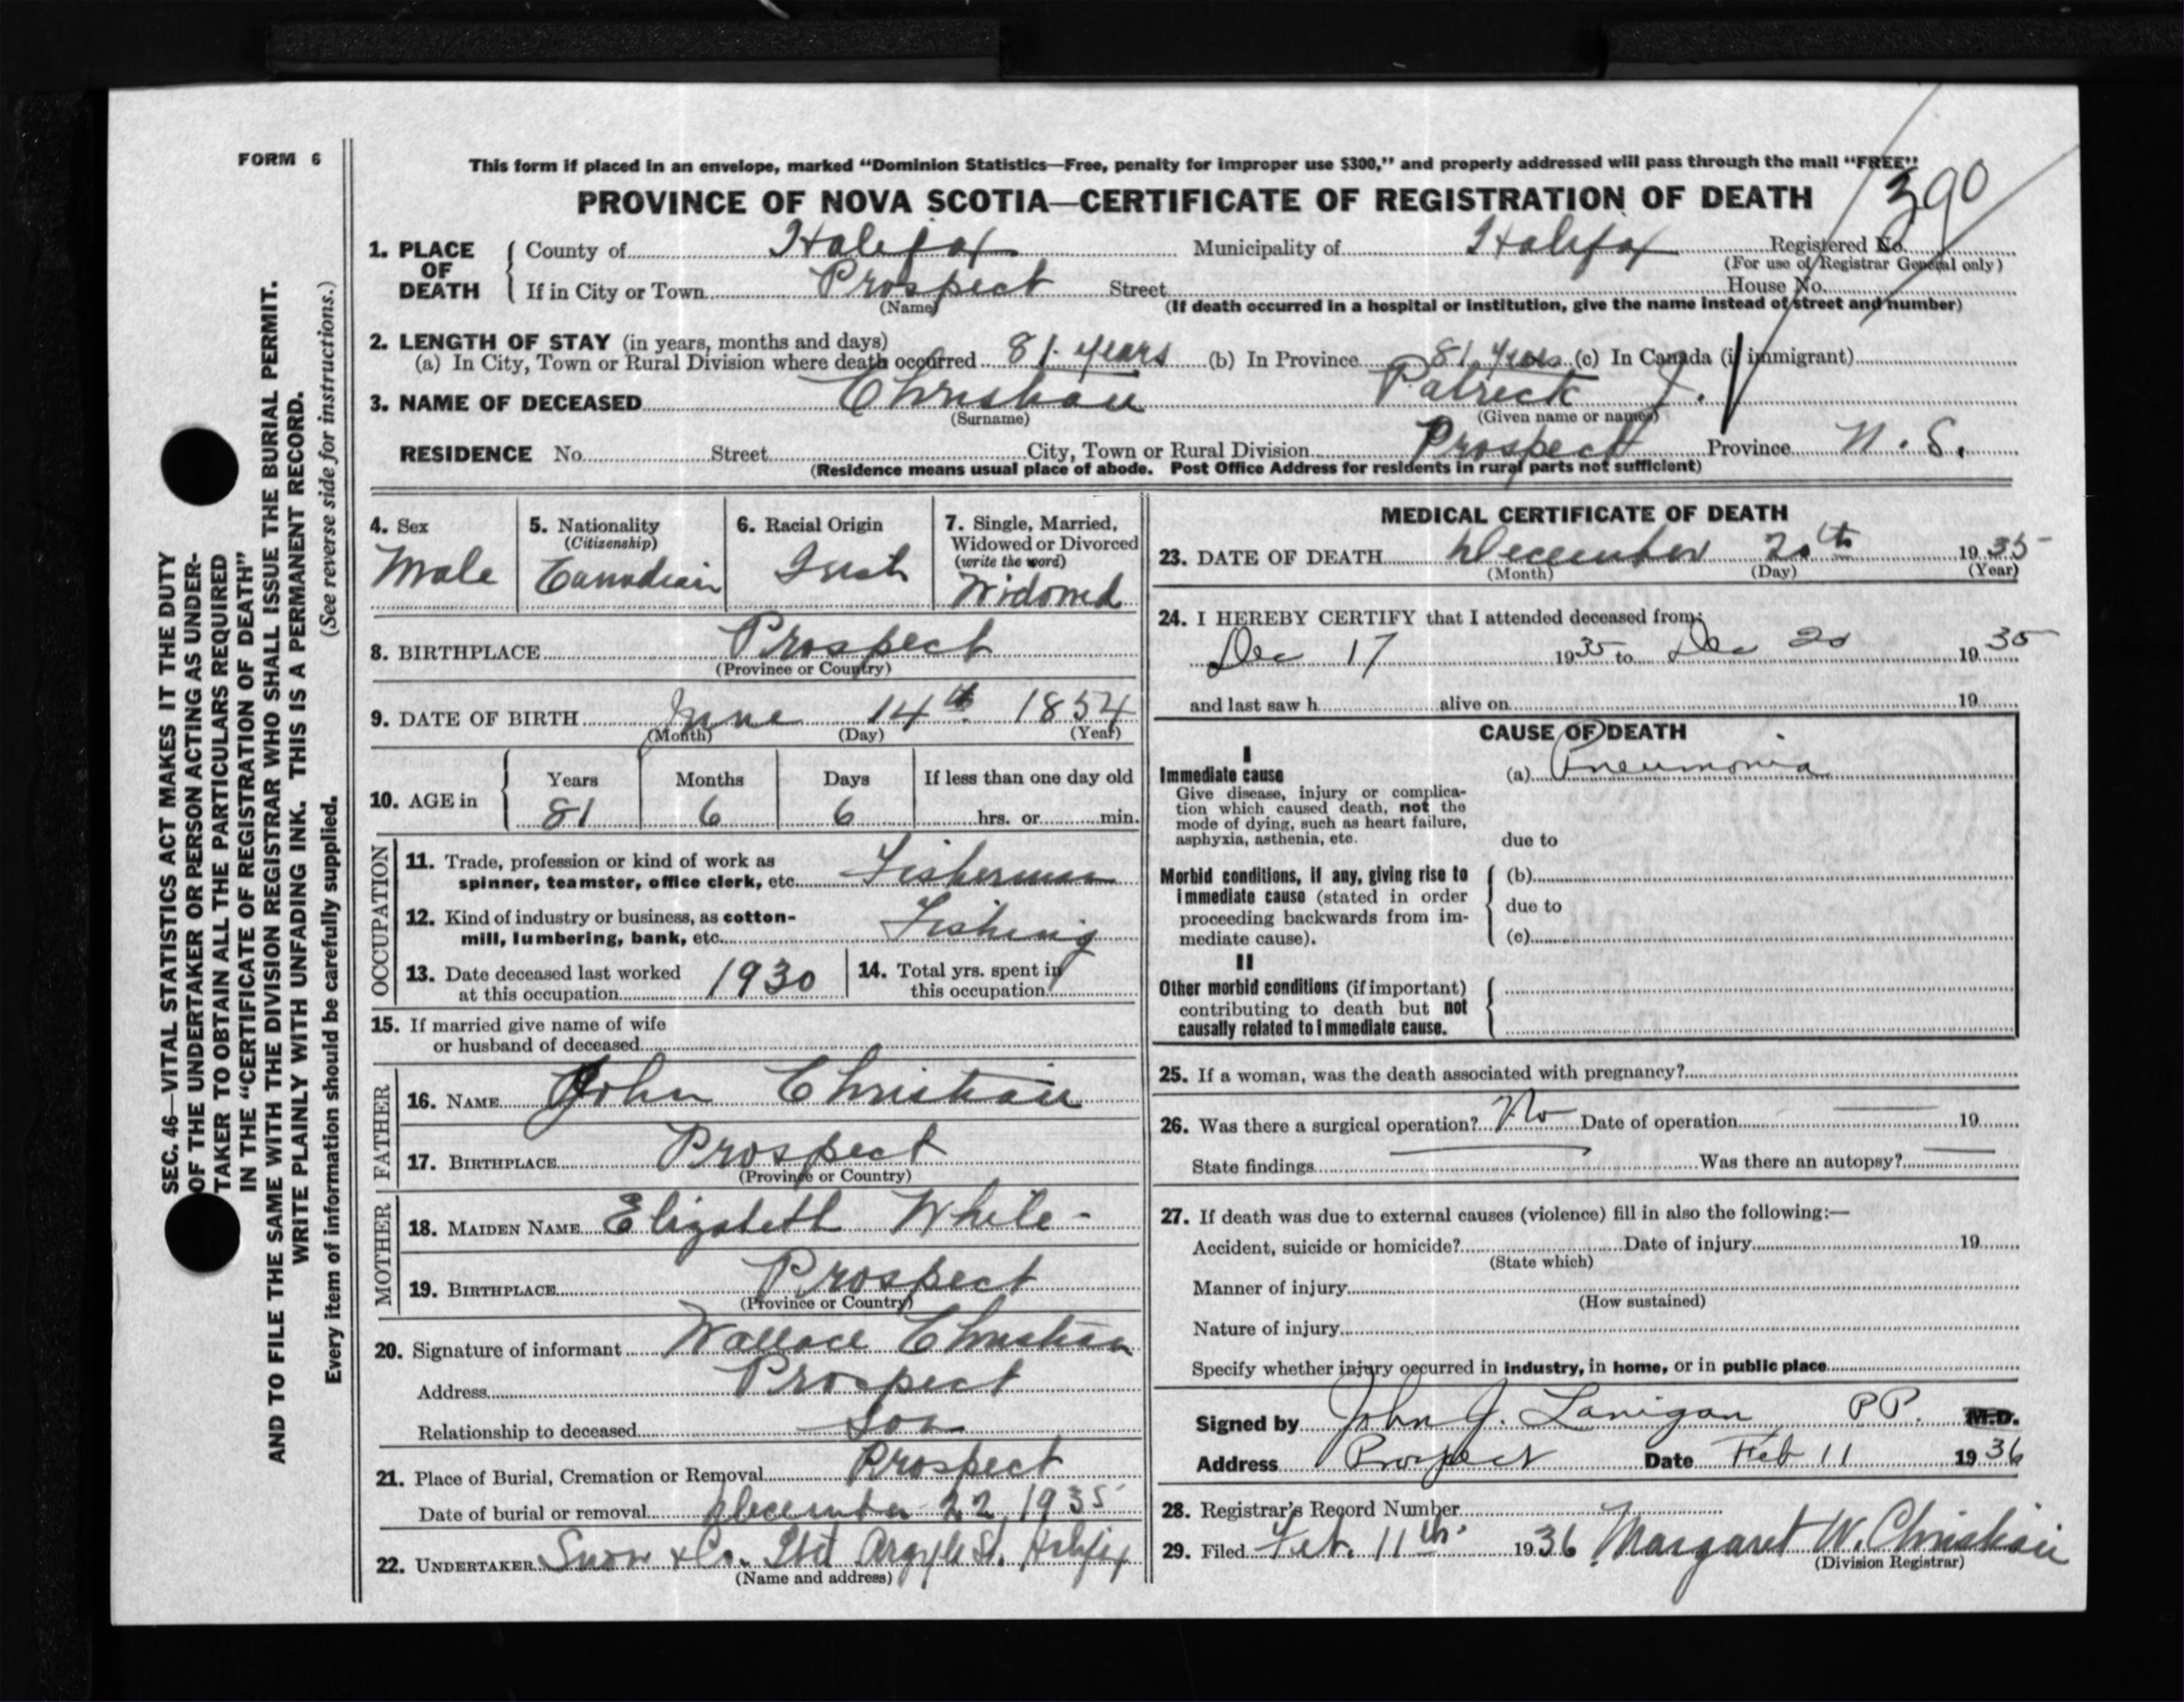 FORM 6
This form if placed in an envelope, marked “Dominion Statistics—Free, penalty for improper use $300,” and properly addressed will pass through the mail “FREE”
PROVINCE OF NOVA SCOTIA—CERTIFICATE OF REGISTRATION OF DEATH
390
1. PLACE OF DEATH County of Halifax Municipality of Halifax Registered No.
(For use of Registrar General only)
If in City or Town Prospect Street House No.
(Name) (If death occurred in a hospital or institution, give the name instead of street and number)
2. LENGTH OF STAY (in years, months and days)
(a) In City, Town or Rural Division where death occurred 81 years (b) In Province 81 years (c) In Canada (if immigrant)
3. NAME OF DECEASED Christian Patrick J.
(Surname) (Given name or names)
RESIDENCE No. Street City, Town or Rural Division Prospect Province N. S.
(Residence means usual place of abode. Post Office Address for residents in rural parts not sufficient)
4. Sex Male
5. Nationality (Citizenship) Canadian
6. Racial Origin Irish
7. Single, Married, Widowed or Divorced (write the word) Widowed
8. BIRTHPLACE Prospect
(Province or Country)
9. DATE OF BIRTH June 14th 1854
(Month) (Day) (Year)
10. AGE in Years 81 Months 6 Days 6 If less than one day old hrs. or min.
OCCUPATION
11. Trade, profession or kind of work as
spinner, teamster, office clerk, etc. Fisherman
12. Kind of industry or business, as cotton-
mill, lumbering, bank, etc. Fishing
13. Date deceased last worked
at this occupation 1930
14. Total yrs. spent in
this occupation
15. If married give name of wife
or husband of deceased
FATHER
16. NAME John Christian
17. BIRTHPLACE Prospect
(Province or Country)
MOTHER
18. MAIDEN NAME Elizabeth White
19. BIRTHPLACE Prospect
(Province or Country)
20. Signature of informant Wallace Christian
Address Prospect
Relationship to deceased Son
21. Place of Burial, Cremation or Removal Prospect
Date of burial or removal December 22, 1935
22. UNDERTAKER Snow & Co. Ltd Argyle St. Halifax
(Name and address)
MEDICAL CERTIFICATE OF DEATH
23. DATE OF DEATH December 20th 1935
(Month) (Day) (Year)
24. I HEREBY CERTIFY that I attended deceased from:
Dec 17 1935 to Dec 20 1935
and last saw h alive on 19
CAUSE OF DEATH
I
Immediate cause (a) Pneumonia
Give disease, injury or complica-
tion which caused death, not the
mode of dying, such as heart failure,
asphyxia, asthenia, etc. due to
Morbid conditions, if any, giving rise to (b)
immediate cause (stated in order due to
proceeding backwards from im-
mediate cause). (c)
II
Other morbid conditions (if important)
contributing to death but not
causally related to immediate cause.
25. If a woman, was the death associated with pregnancy?
26. Was there a surgical operation? No Date of operation 19
State findings Was there an autopsy?
27. If death was due to external causes (violence) fill in also the following:—
Accident, suicide or homicide? Date of injury 19
(State which)
Manner of injury
(How sustained)
Nature of injury
Specify whether injury occurred in industry, in home, or in public place
Signed by John J. Lanigan P.P. M.D.
Address Prospect Date Feb 11 1936
28. Registrar's Record Number
29. Filed Feb. 11th 1936 Margaret W. Christian
(Division Registrar)
SEC. 46—VITAL STATISTICS ACT MAKES IT THE DUTY
OF THE UNDERTAKER OR PERSON ACTING AS UNDER-
TAKER TO OBTAIN ALL THE PARTICULARS REQUIRED
IN THE “CERTIFICATE OF REGISTRATION OF DEATH”
AND TO FILE THE SAME WITH THE DIVISION REGISTRAR WHO SHALL ISSUE THE BURIAL PERMIT.
WRITE PLAINLY WITH UNFADING INK. THIS IS A PERMANENT RECORD.
Every item of information should be carefully supplied. (See reverse side for instructions.)